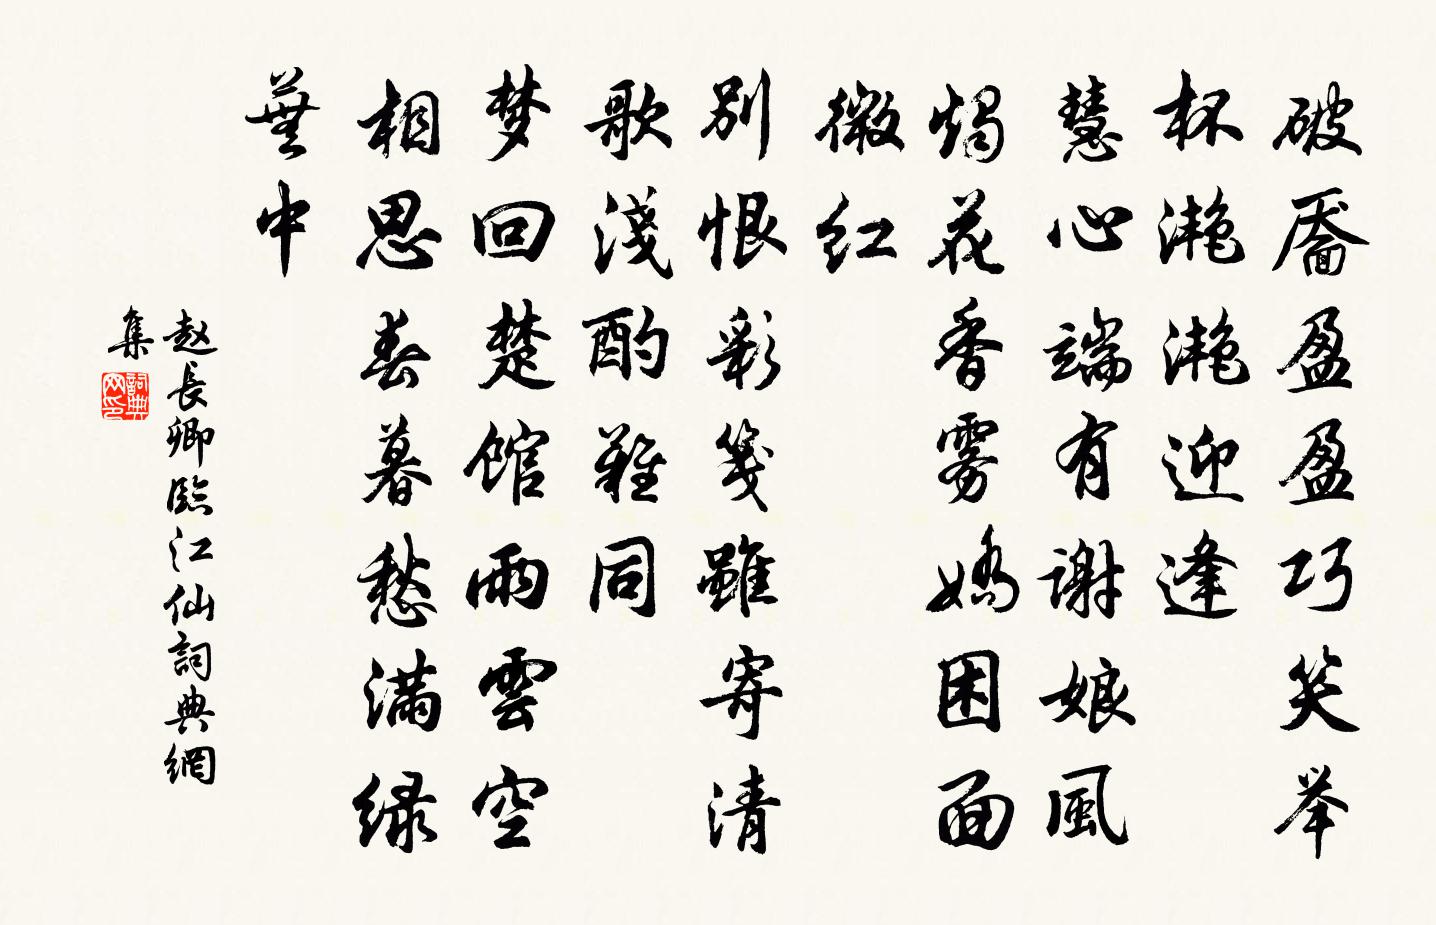 破靥盈盈巧笑举
杯滟滟迎逢
慧心端有謝娘風
燭花香雾嬌困面
微红
別恨彩箋雖寄清
歌淺酌難同
梦回楚馆雨雲空
相思春暮愁滿绿
蕪中
赵長卿臨江仙詞典網
集
詞典
网印